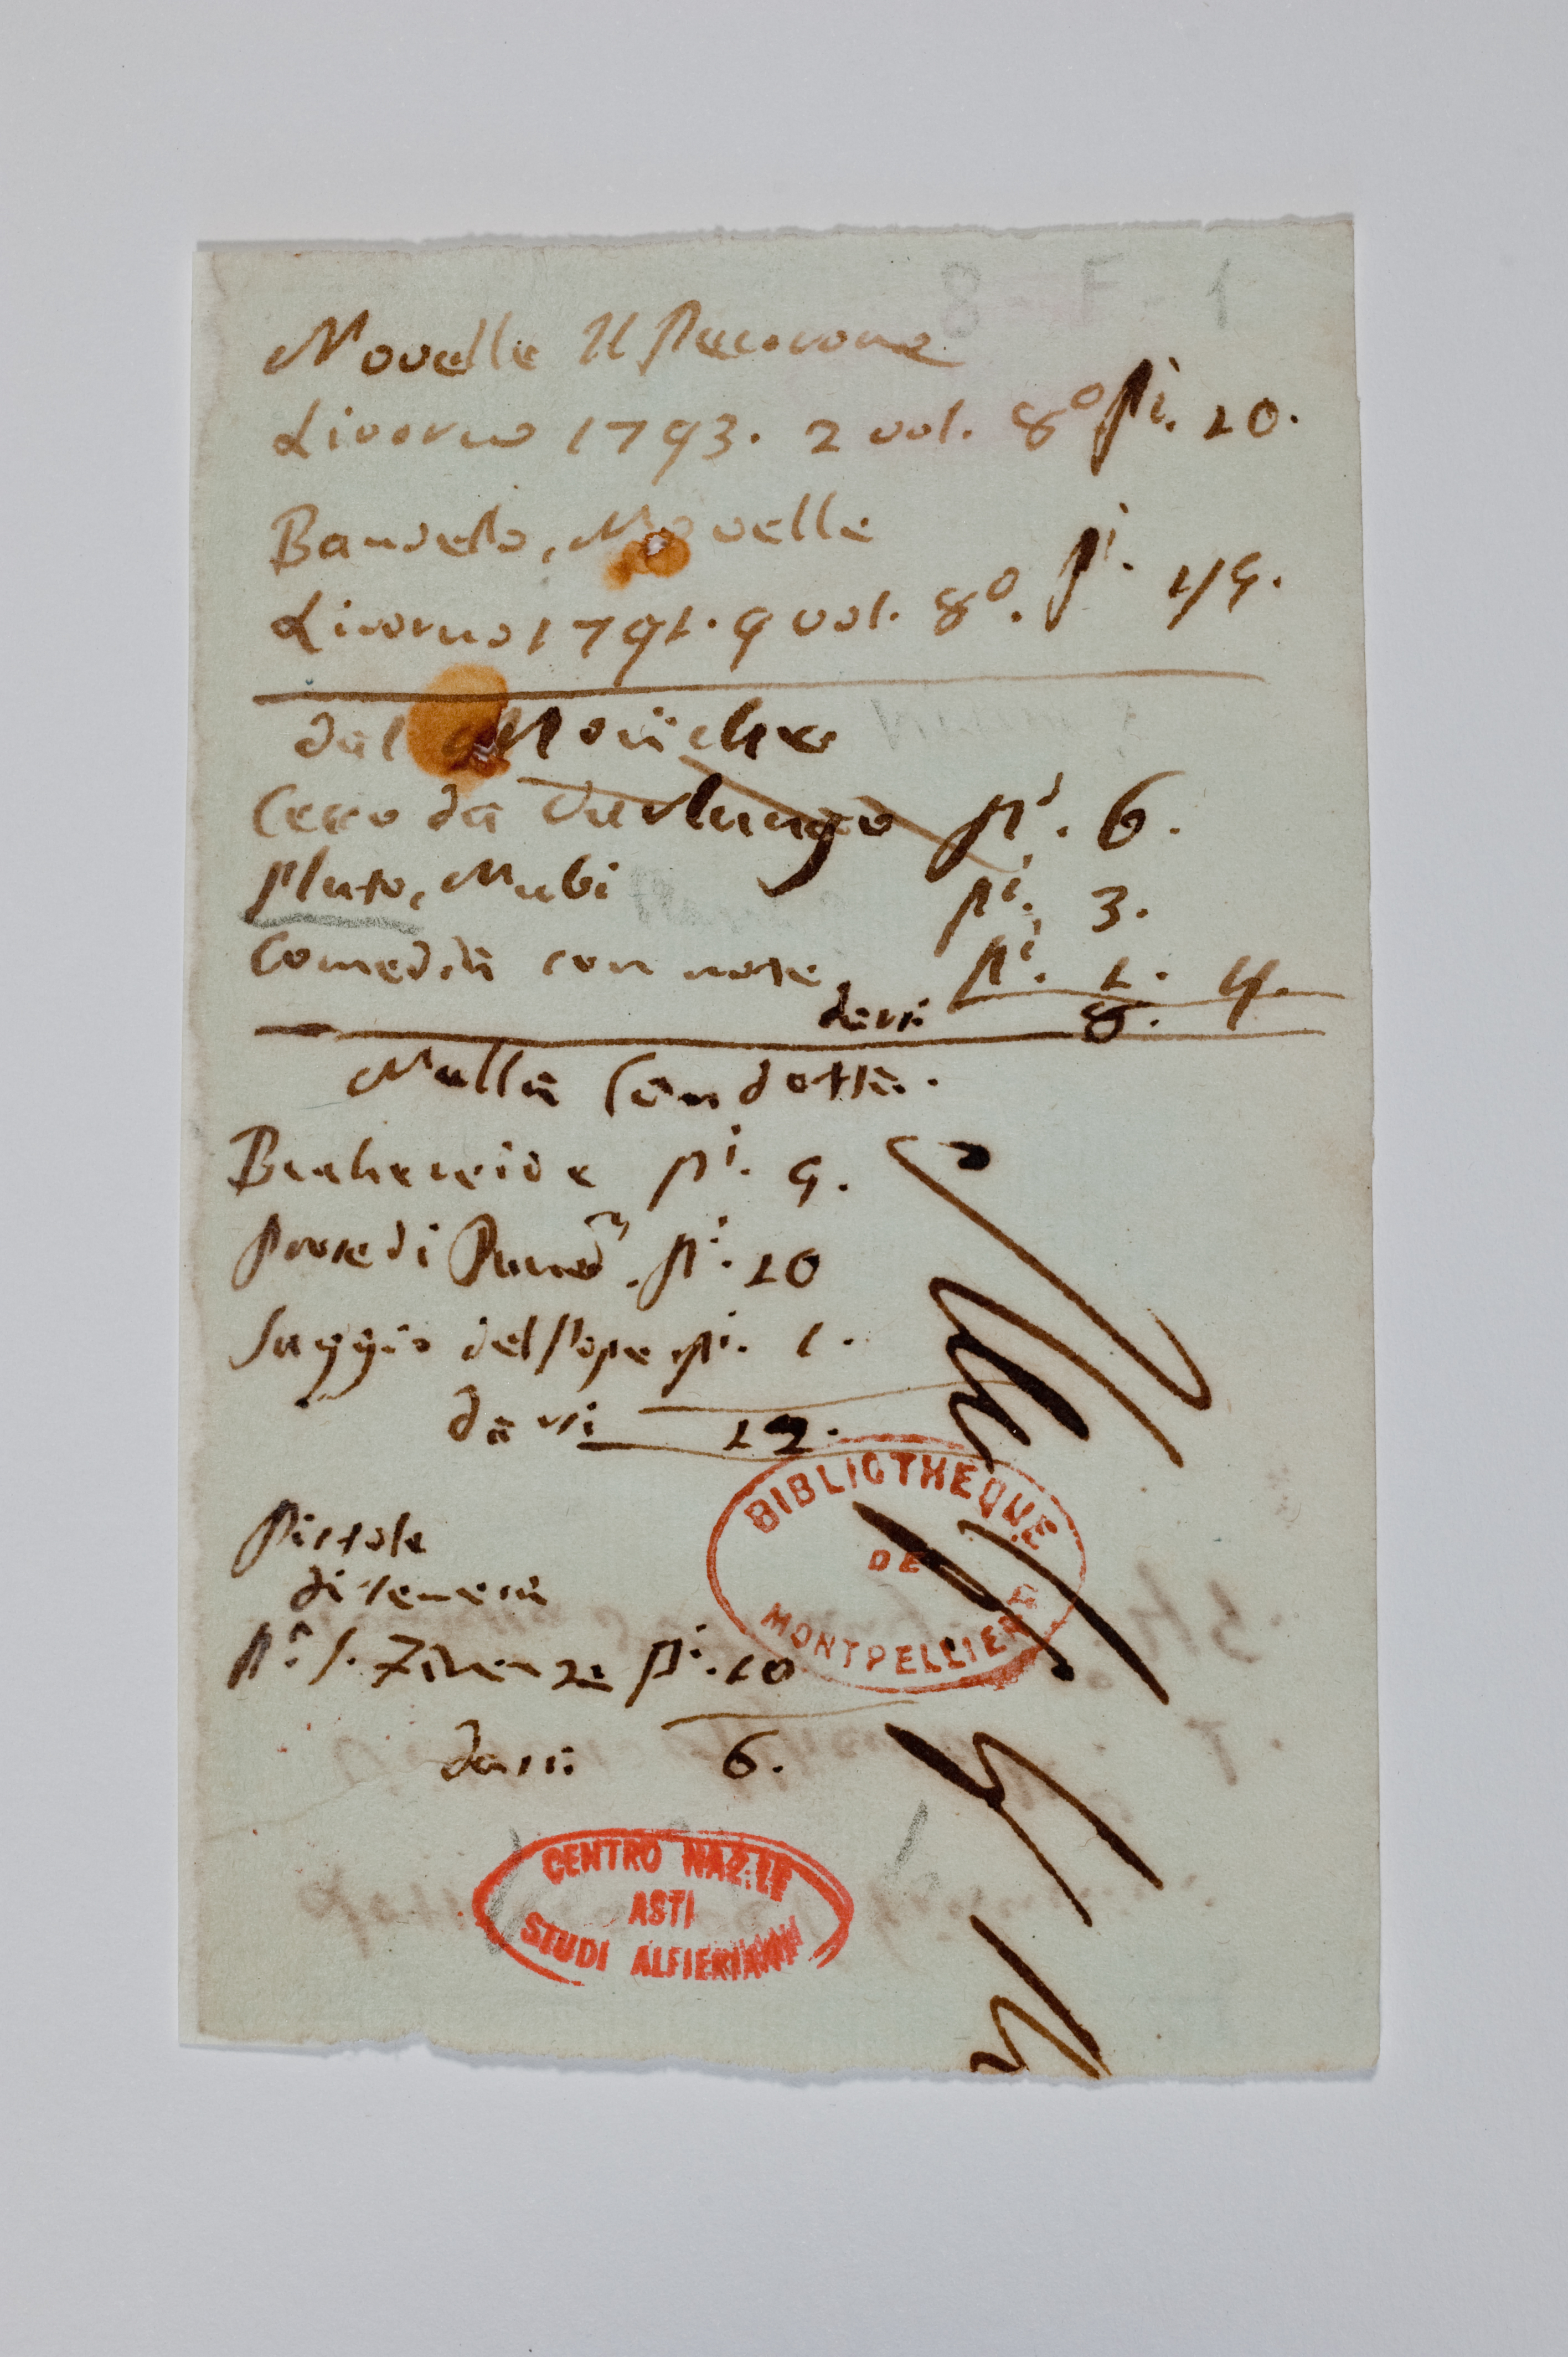 8 - F - 1
Novelle Il Pecorone
Livorno 1793. 2 vol. 8º pi. 20.
Bandello, Novelle
Livorno 1791. 9 vol. 8º. pi. 45.
dal Molini che
Cecco da Varlungo pi. 6.
Pluto, Nubi pi. 3.
Comedia con note pi. 1. 4.
darsi 8. 4
Nella Condotta.
Bucchereide pi. 9.
Prose di pi. 10
Saggio del Pope pi. 1.
darsi 12.
Pistole
di Seneca
Firenze pi. 10
darsi 6.
BIBLIOTHEQUE
DE
MONTPELLIER
CENTRO NAZ.LE
ASTI
STUDI ALFIERIANI